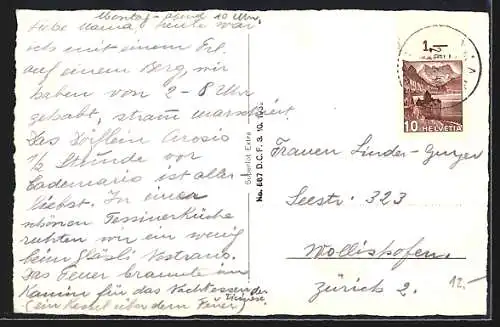 Montag-abend 10 Uhr.
Liebe Mama, heute war
ich mit einem Frl.
auf einem Berg, wir
haben von 2-8 Uhr
gehabt, stramm marschiert.
Das Dörflein Arosio
1/2 Stunde vor
Cademario ist aller-
liebst. In einer
schönen Tessinerküche
ruhten wir ein wenig
beim Gläsli Nostrano.
Das Feuer brannte im
Kamin für das Nachtessen der
Tessiner
(ein Kessel über dem Feuer)
Superfot Extra
No. 867 D.C.F. 3. 10.
10 HELVETIA
Frauen Linder-Gujer
Seestr. 323
Wollishofen.
Zürich 2.
12.-